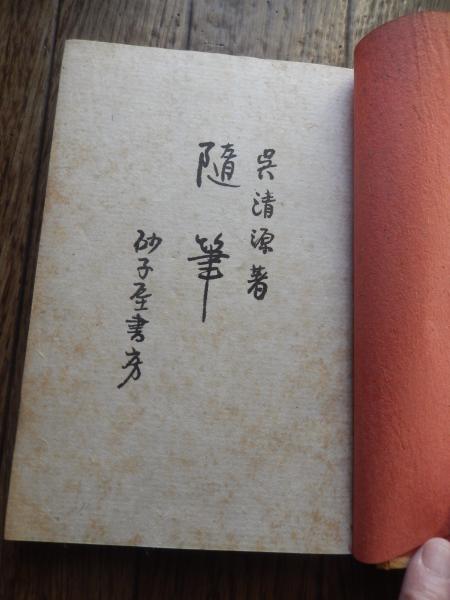 呉清源著
隨筆
砂子屋書房